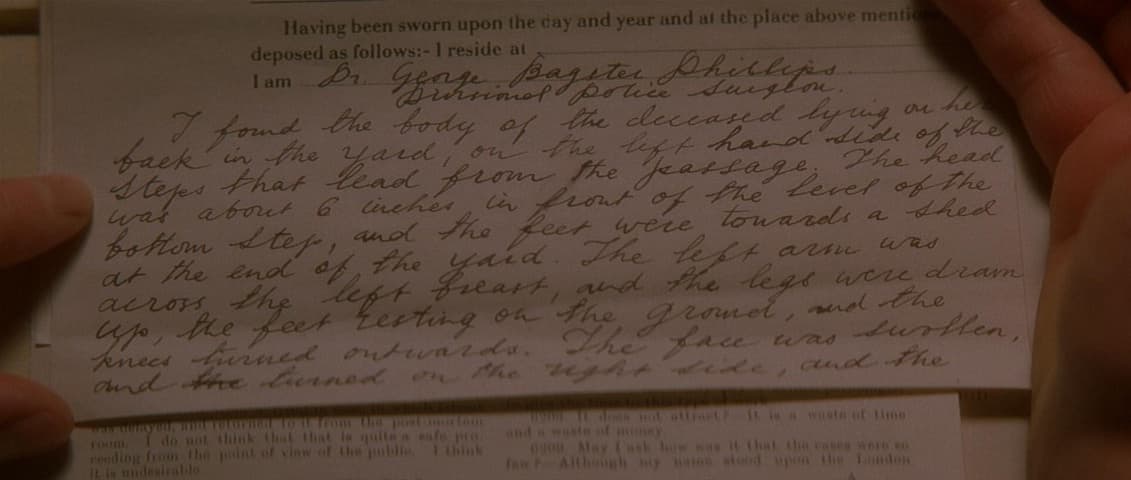 Having been sworn upon the day and year and at the place above mentio
deposed as follows:- I reside at
I am Dr. George Bagster Phillips
Divisional Police Surgeon.
I found the body of the deceased lying on her
back in the yard, on the left hand side of the
steps that lead from the passage. The head
was about 6 inches in front of the level of the
bottom step, and the feet were towards a shed
at the end of the yard. The left arm was
across the left breast, and the legs were drawn
up, the feet resting on the ground, and the
knees turned outwards. The face was swollen,
and the turned on the right side, and the
was delayed, and returned to it from the post mortem
room. I do not think that that is quite a safe pro
ceeding from the point of view of the public. I think
it is undesirable
It does not attract? It is a waste of time
and a waste of money.
May I ask how was it that the cases were so
few?—Although my name stood upon the London